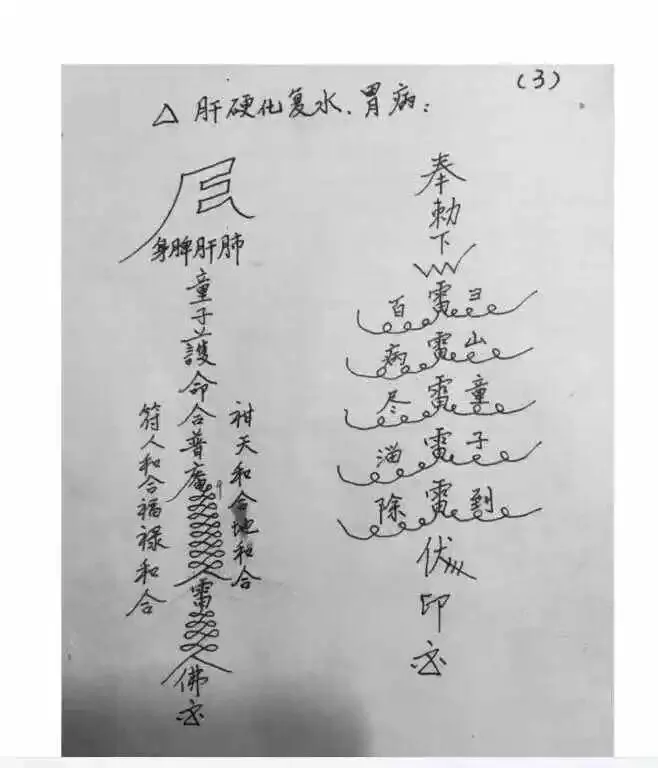 (3)
△ 肝硬化复水、胃病：
奉勅下
百雷彐
病雷山
尽雷童
消雷子
除雷到
伏
印
身脾肝肺
童子護命合普庵
雷
佛
符人和合福禄和合
神天和合地和合